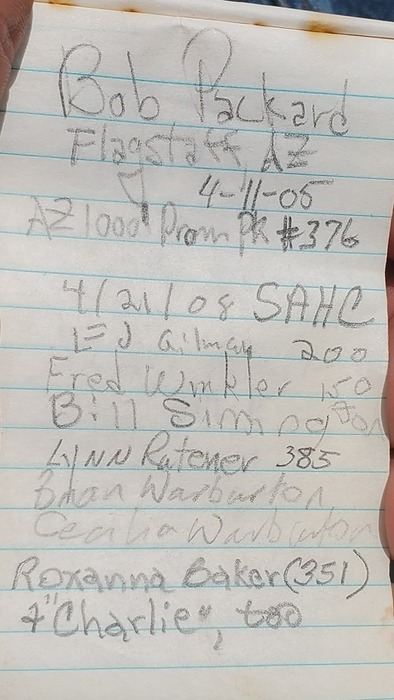 Bob Packard
Flagstaff, AZ
4-11-05
AZ 1000' Prom PK #376
4/21/08 SAHC
Gilman 200
Fred Winkler 150
Bill Simington
LyNN Rutener 385
Brian Warburton
Cecilia Warburton
Roxanna Baker (351)
+ "Charlie", too